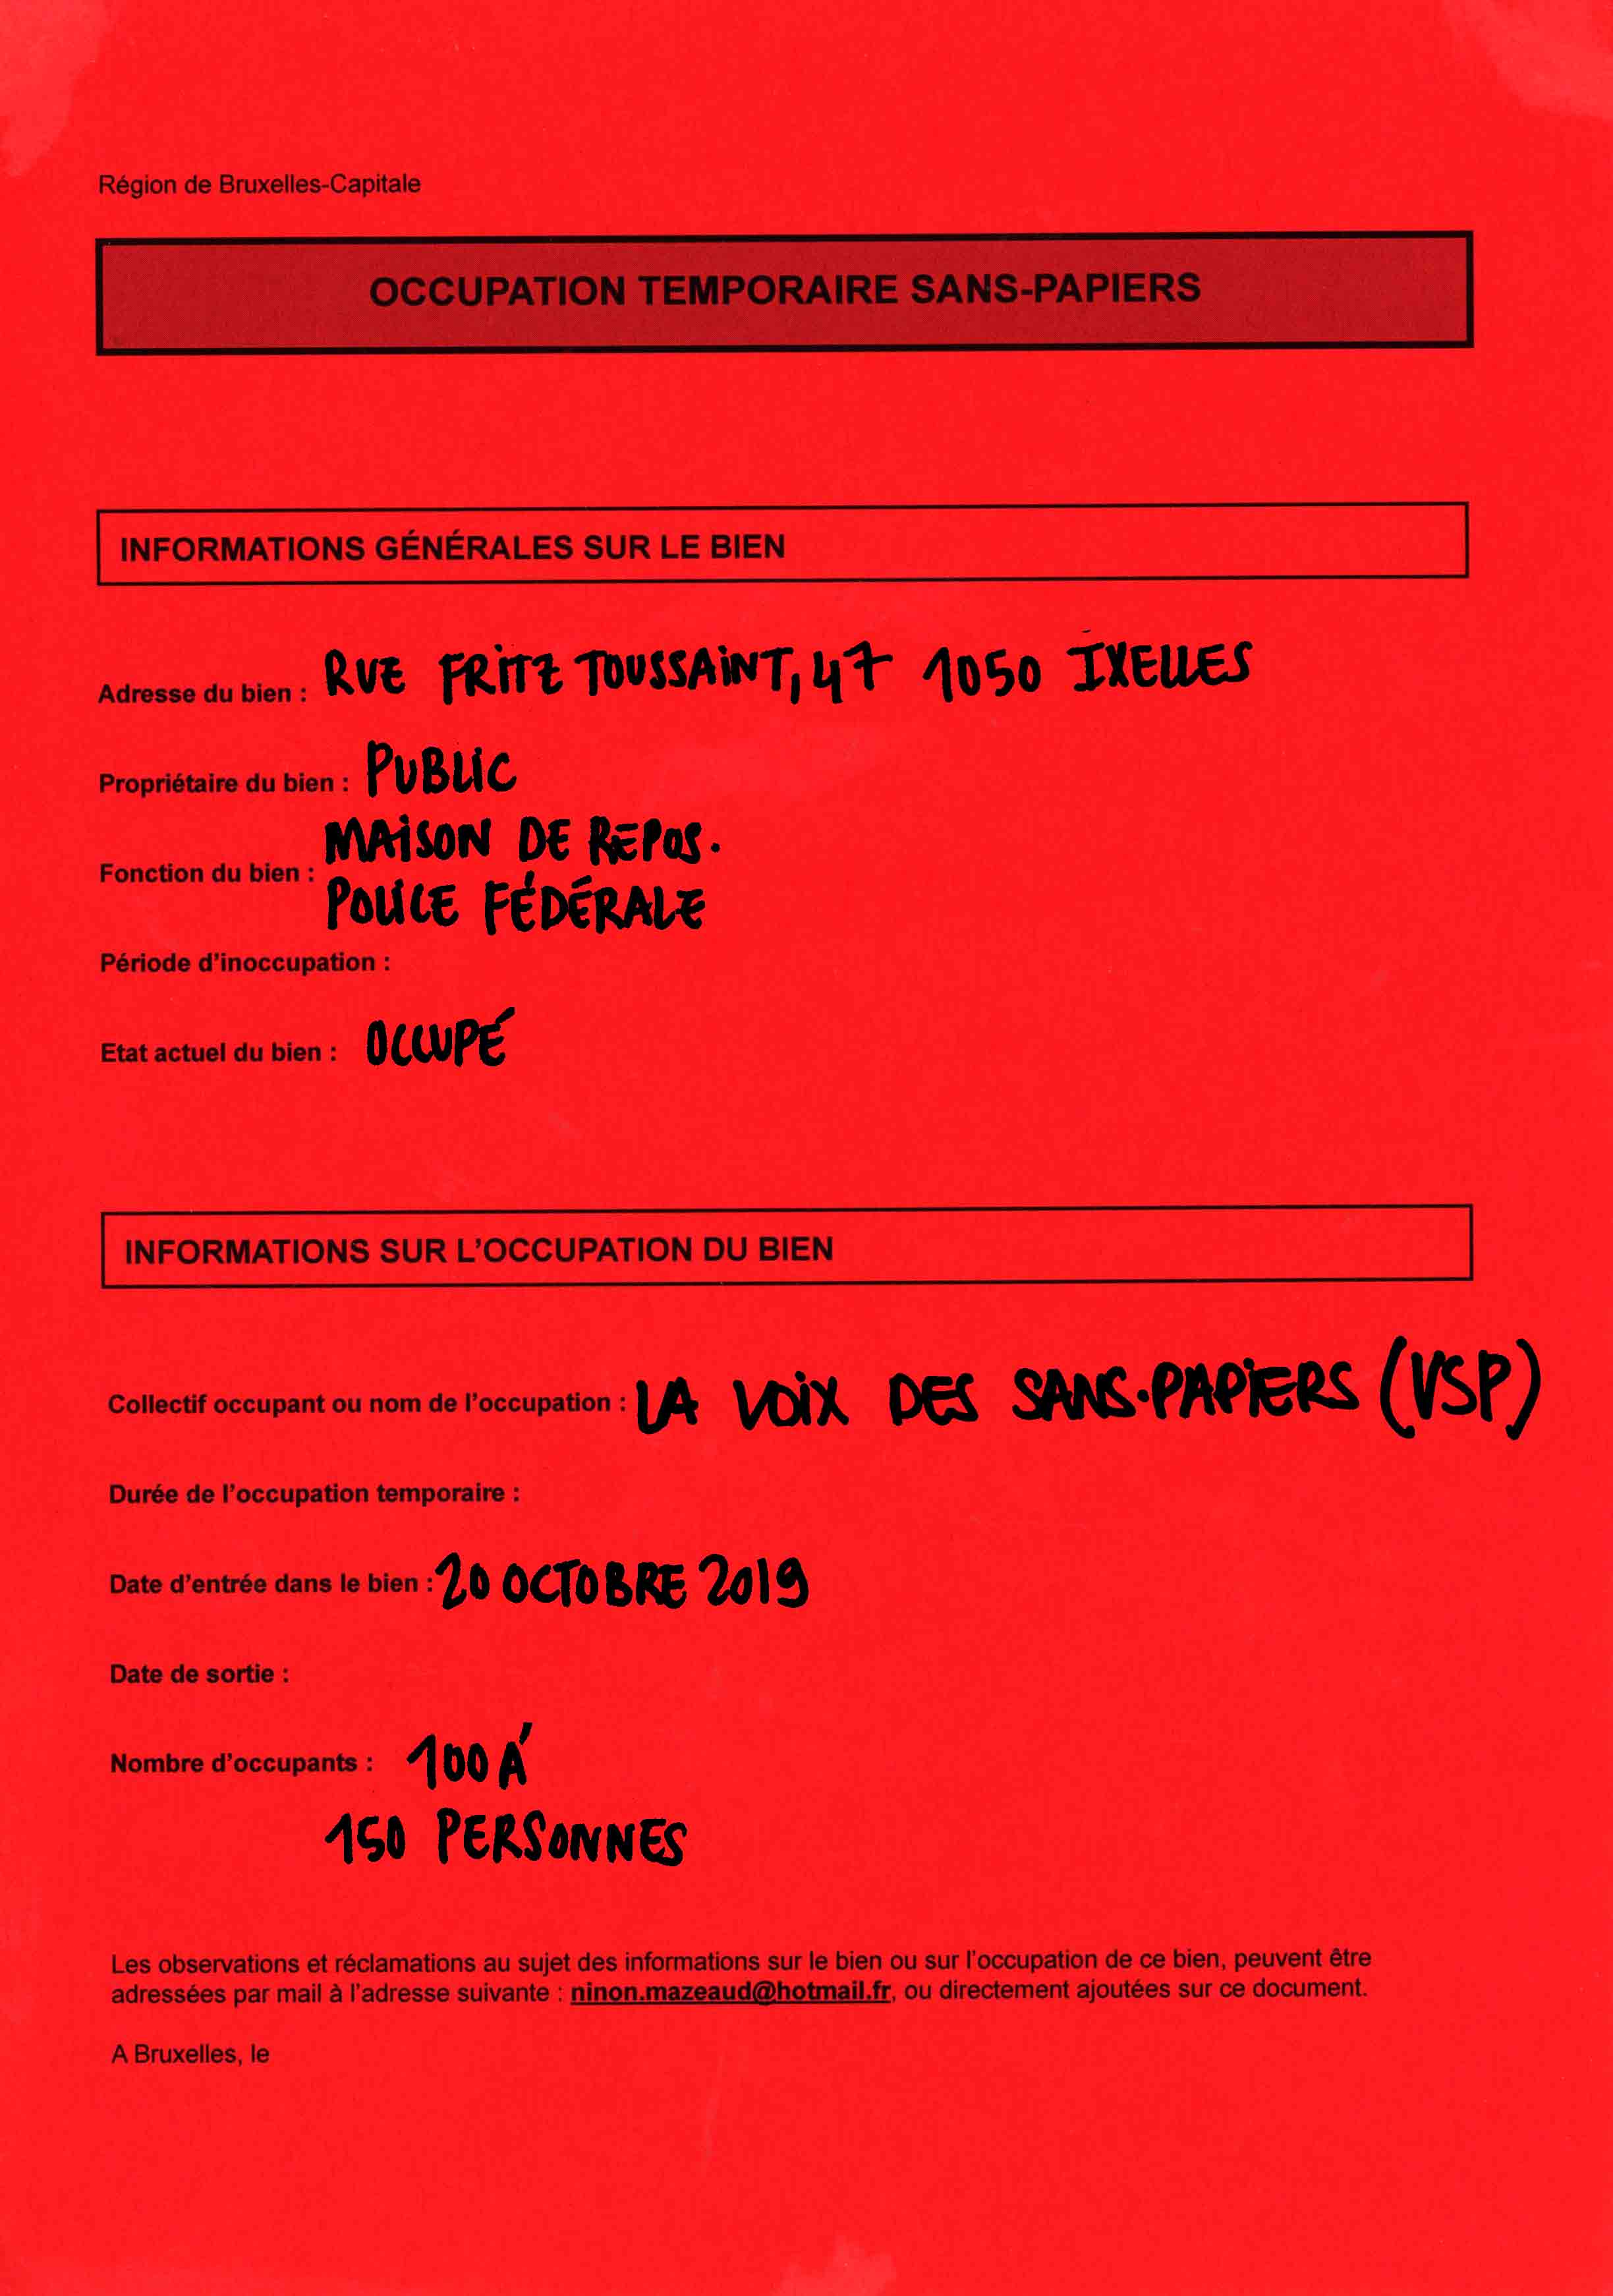 Région de Bruxelles-Capitale
OCCUPATION TEMPORAIRE SANS-PAPIERS
INFORMATIONS GÉNÉRALES SUR LE BIEN
Adresse du bien : RUE FRITZ TOUSSAINT, 47 1050 IXELLES
Propriétaire du bien : PUBLIC
Fonction du bien : MAISON DE REPOS.
POLICE FÉDÉRALE
Période d'inoccupation :
Etat actuel du bien : OCCUPÉ
INFORMATIONS SUR L'OCCUPATION DU BIEN
Collectif occupant ou nom de l'occupation : LA VOIX DES SANS-PAPIERS (VSP)
Durée de l'occupation temporaire :
Date d'entrée dans le bien : 20 OCTOBRE 2019
Date de sortie :
Nombre d'occupants : 100 Á
150 PERSONNES
Les observations et réclamations au sujet des informations sur le bien ou sur l'occupation de ce bien, peuvent être
adressées par mail à l'adresse suivante : ninon.mazeaud@hotmail.fr, ou directement ajoutées sur ce document.
A Bruxelles, le